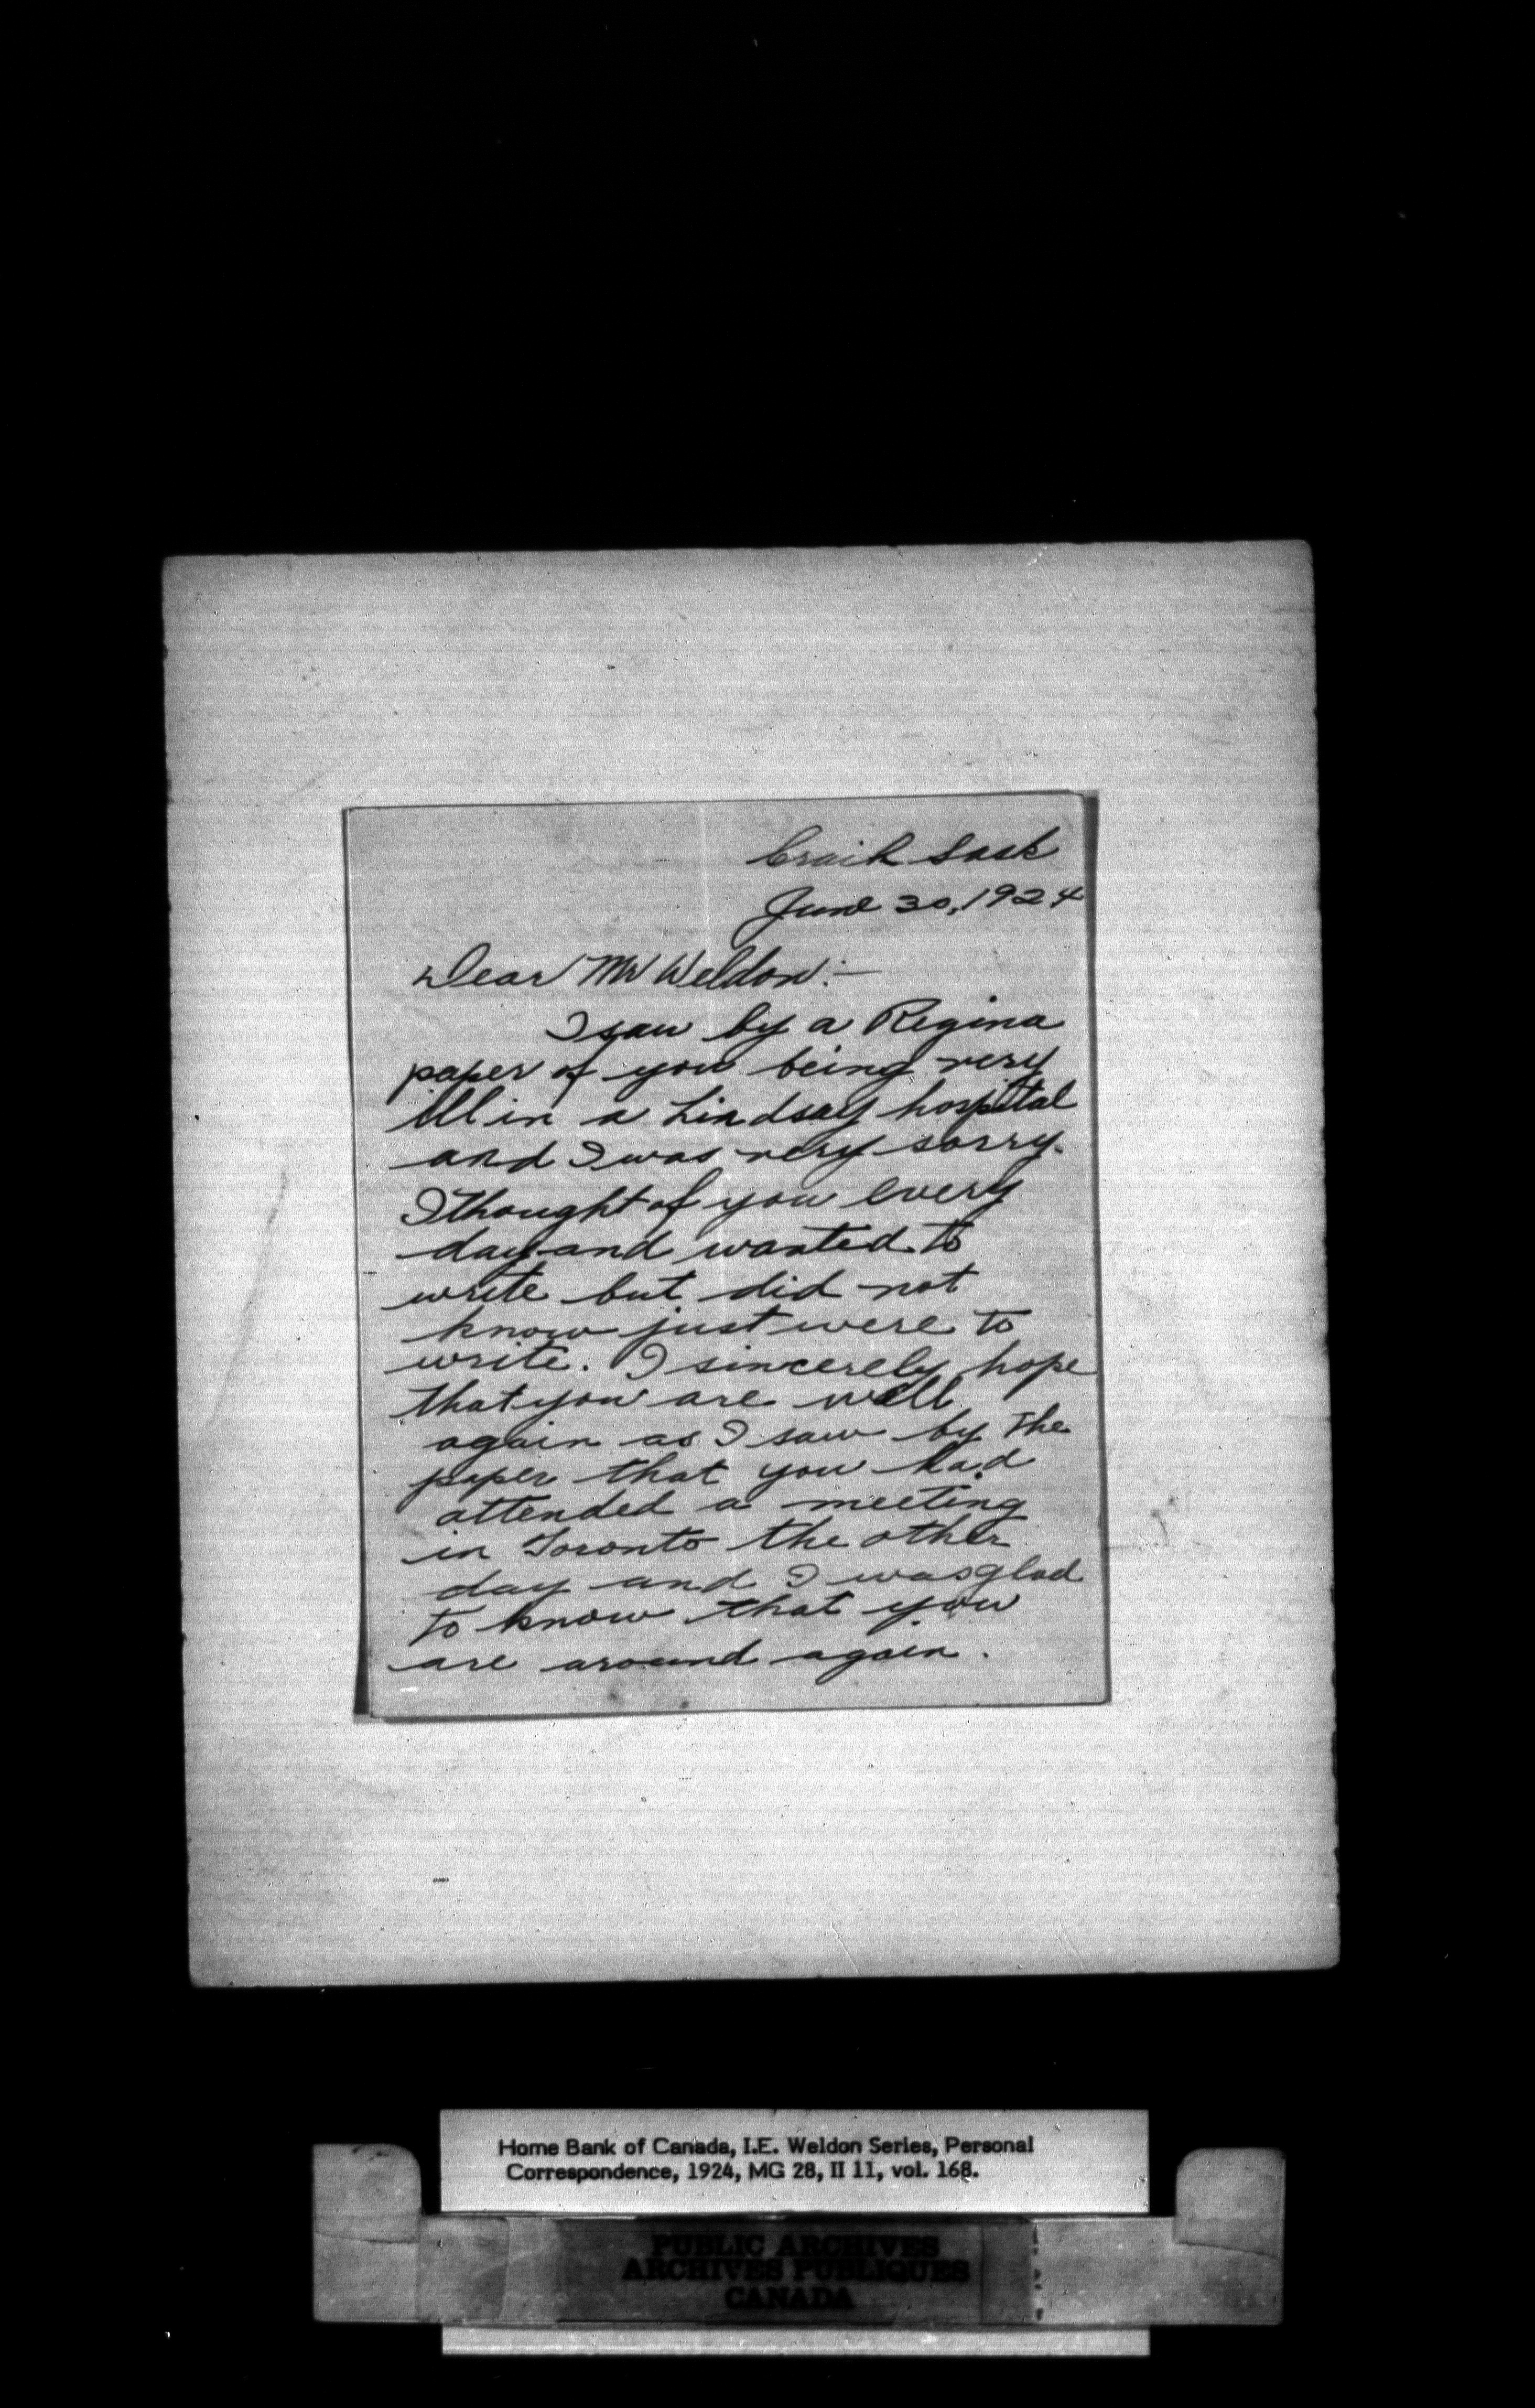 Craik Sask
June 30, 1924
Dear Mr Weldon:—
I saw by a Regina
paper of you being very
ill in a Lindsay hospital
and I was very sorry.
I thought of you every
day and wanted to
write but did not
know just were to
write. I sincerely hope
that you are well
again as I saw by the
paper that you had
attended a meeting
in Toronto the other
day and I was glad
to know that you
are around again.
Home Bank of Canada, I.E. Weldon Series, Personal
Correspondence, 1924, MG 28, II 11, vol. 168.
PUBLIC ARCHIVES
ARCHIVES PUBLIQUES
CANADA